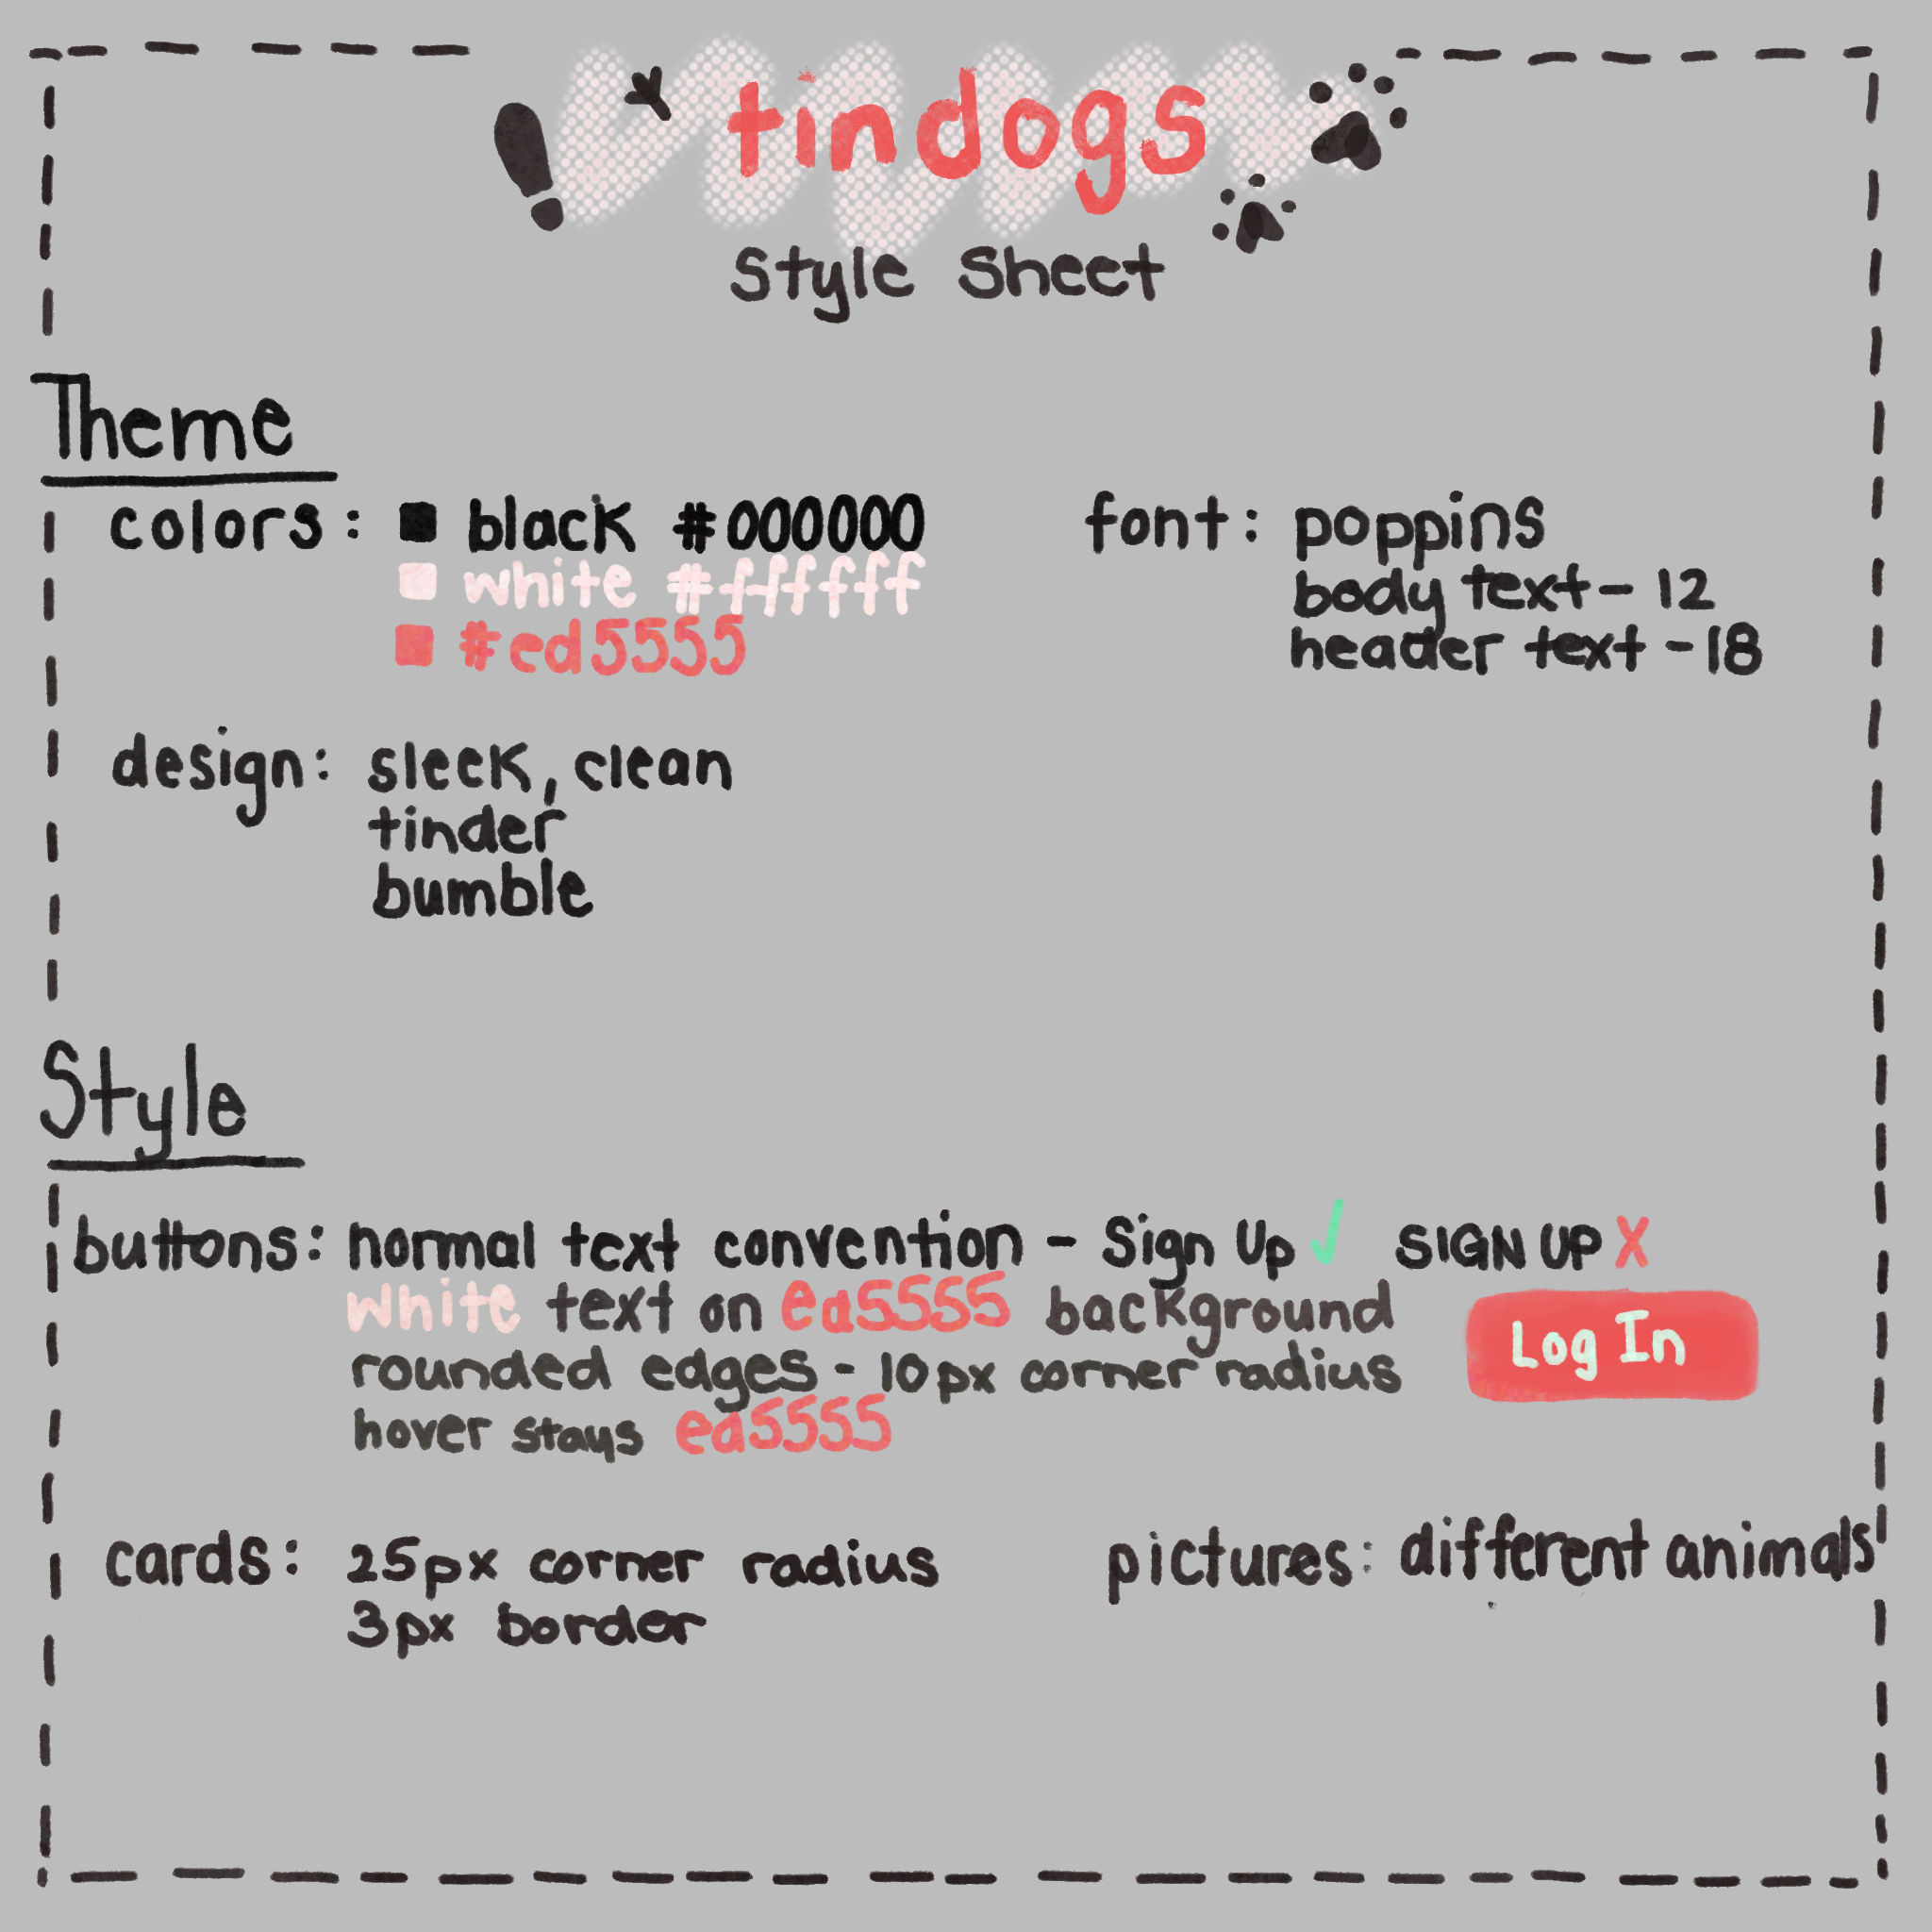 tindogs
Style Sheet
Theme
colors: black #000000
white #ffffff
#ed5555
font: poppins
body text - 12
header text - 18
design: sleek, clean
tinder
bumble
Style
buttons: normal text convention - Sign Up ✓ SIGN UP X
white text on ed5555 background
rounded edges - 10px corner radius
hover stays ed5555
Log In
cards: 25px corner radius
3px border
pictures: different animals